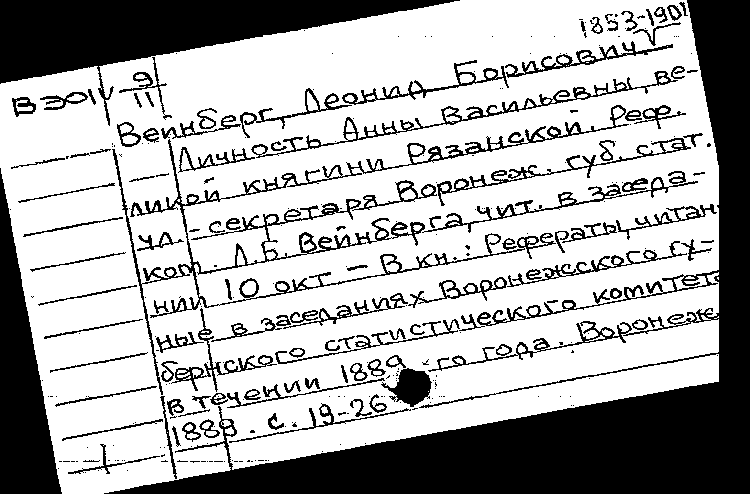 1853-1901
В ЭО1V 9/11
Вейнберг, Леонид Борисович. √
Личность Анны Васильевны, ве-
ликой княгини Рязанской. Реф.
чл.-секретаря Воронеж. губ. стат.
ком. Л.Б. Вейнберга, чит. в заседа-
нии 10 окт. - В кн.: Рефераты, читан
ные в заседаниях Воронежского гу-
бернского статистического комитета
в течении 1889-го года. Воронеж
1889. с. 19-26
1